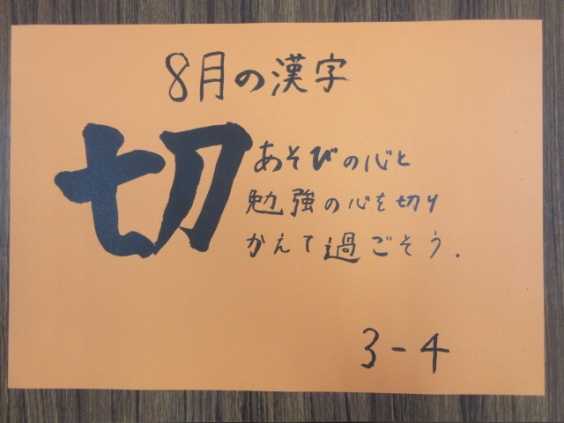 8月の漢字
切
あそびの心と
勉強の心を切り
かえて過ごそう.
3-4